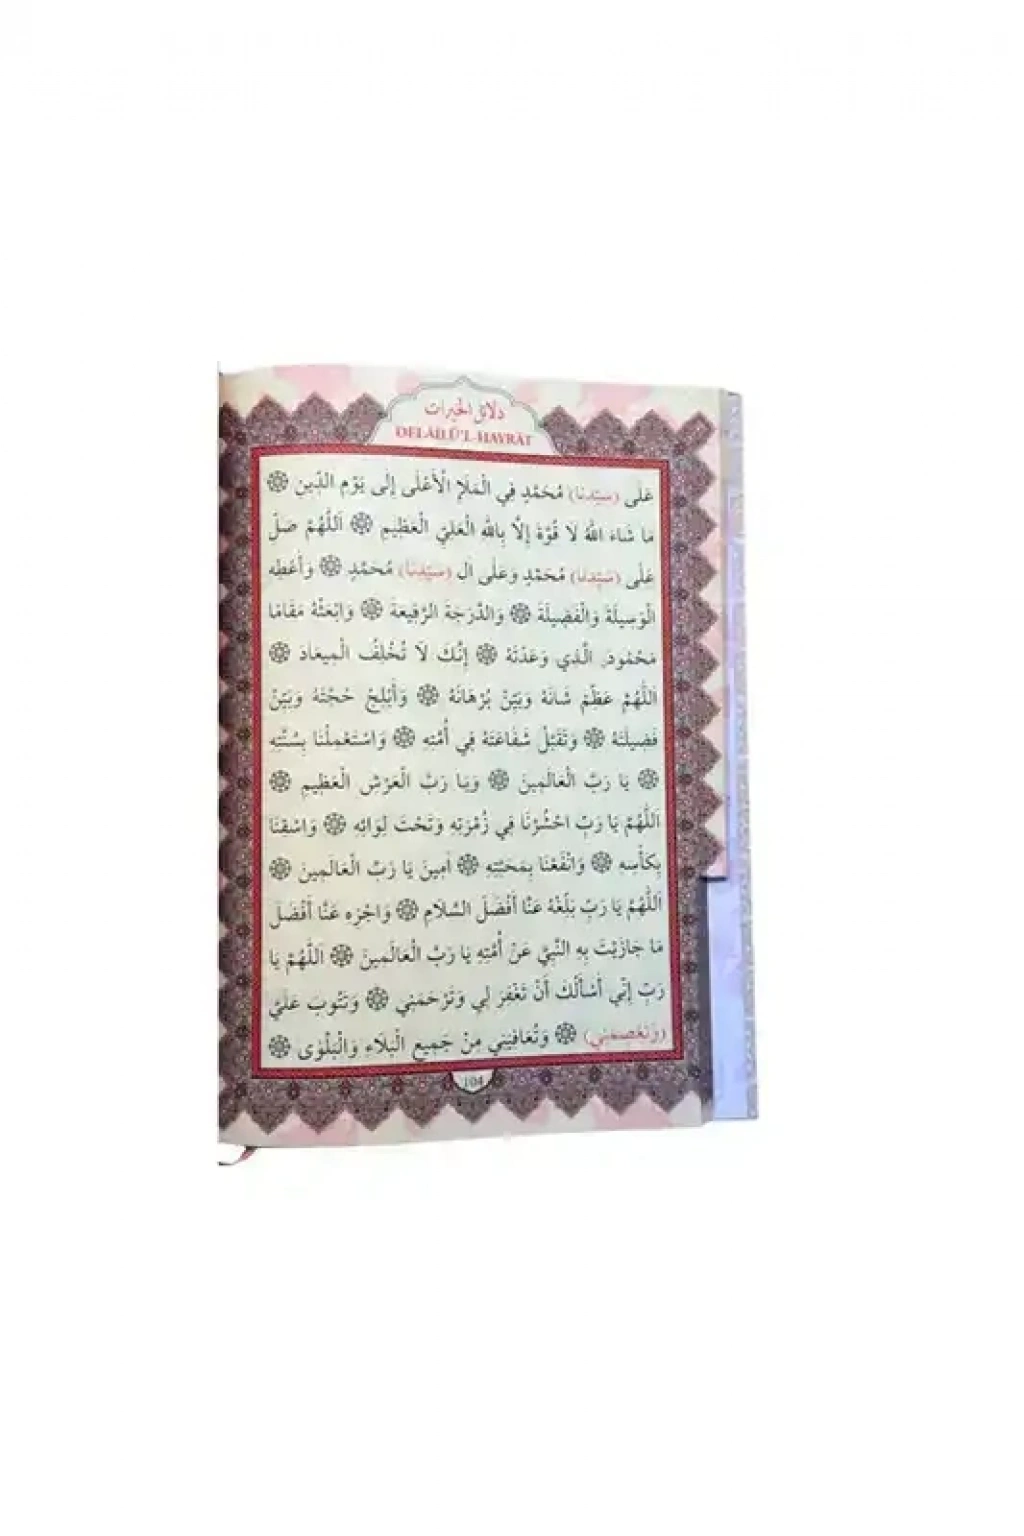 دلائل الخيرات
DELÂİLÜ'L-HAYRÂT
عَلَى (سَيِّدِنَا) مُحَمَّدٍ فِي الْمَلَإِ الْأَعْلَى إِلَى يَوْمِ الدِّينِ ۞
مَا شَاءَ اللهُ لَا قُوَّةَ إِلَّا بِاللهِ الْعَلِيِّ الْعَظِيمِ ۞ اَللّٰهُمَّ صَلِّ
عَلَى (سَيِّدِنَا) مُحَمَّدٍ وَعَلَى اٰلِ (سَيِّدِنَا) مُحَمَّدٍ ۞ وَأَعْطِهِ
الْوَسِيلَةَ وَالْفَضِيلَةَ ۞ وَالدَّرَجَةَ الرَّفِيعَةَ ۞ وَابْعَثْهُ مَقَامًا
مَحْمُودَ الَّذِي وَعَدْتَهُ ۞ إِنَّكَ لَا تُخْلِفُ الْمِيعَادَ ۞
اَللّٰهُمَّ عَظِّمْ شَانَهُ وَبَيِّنْ بُرْهَانَهُ ۞ وَأَبْلِجْ حُجَّتَهُ وَبَيِّنْ
فَضِيلَتَهُ ۞ وَتَقَبَّلْ شَفَاعَتَهُ فِي أُمَّتِهِ ۞ وَاسْتَعْمِلْنَا بِسُنَّتِهِ
۞ يَا رَبَّ الْعَالَمِينَ ۞ وَيَا رَبَّ الْعَرْشِ الْعَظِيمِ ۞
اَللّٰهُمَّ يَا رَبِّ احْشُرْنَا فِي زُمْرَتِهِ وَتَحْتَ لِوَائِهِ ۞ وَاسْقِنَا
بِكَأْسِهِ ۞ وَانْفَعْنَا بِمَحَبَّتِهِ ۞ اٰمِينَ يَا رَبَّ الْعَالَمِينَ ۞
اَللّٰهُمَّ يَا رَبِّ بَلِّغْهُ عَنَّا أَفْضَلَ السَّلَامِ ۞ وَاجْزِهِ عَنَّا أَفْضَلَ
مَا جَازَيْتَ بِهِ النَّبِيَّ عَنْ أُمَّتِهِ يَا رَبَّ الْعَالَمِينَ ۞ اَللّٰهُمَّ يَا
رَبِّ إِنِّي أَسْأَلُكَ أَنْ تَغْفِرَ لِي وَتَرْحَمَنِي ۞ وَتَتُوبَ عَلَيَّ
(وَتَعْصِمَنِي) ۞ وَتُعَافِيَنِي مِنْ جَمِيعِ الْبَلَاءِ وَالْبَلْوٰى ۞
104